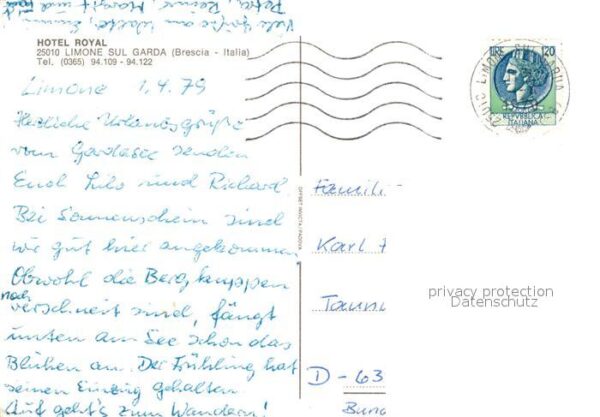 Viele Grüße an
HOTEL ROYAL
25010 LIMONE SUL GARDA (Brescia - Italia)
Tel. (0365) 94.109 - 94.122
Limone 1.4.79
Herzliche Urlaubsgrüße
vom Gardasee senden
Euch Lilo und Richard.
Bei Sonnenschein sind
wir gut hier angekommen
Obwohl die Bergkuppen
noch
verschneit sind, fängt
unten am See schon das
Blühen an. Der Frühling hat
seinen Einzug gehalten.
Auf geht's zum Wandern!
OFFSET INVICTA / PADOVA
LIRE 120
REPUBBLICA
ITALIANA
25010 LIMONE SUL GARDA
Famili
Karl
Taunu
D-63
privacy protection
Datenschutz